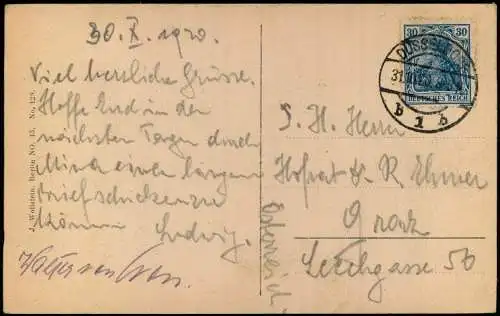 30. X. 1920.
Viel herzliche Grüsse.
Hoffe Euch in den
nächsten Tagen durch
Mina einen langen
Brief schicken zu
können Ludwig.
J. Wollstein, Berlin NO. 43. No. 128.
30 30
DEUTSCHES REICH
DÜSSELDORF
31.
b 1 b
S. H. Herrn
Hofrat R.
Graz
Leechgasse 56
Österreich.